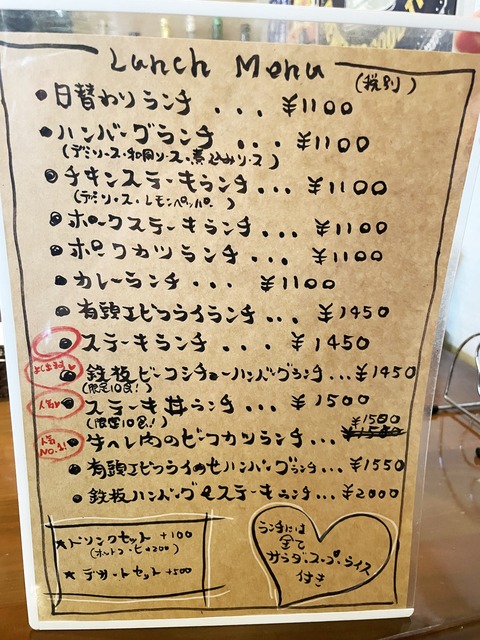 Lunch Menu
(税別)
●日替わりランチ ... ¥1100
●ハンバーグランチ ... ¥1100
(デミソース・和風ソース・煮込みソース)
●チキンステーキランチ... ¥1100
(デミソース・レモンペッパー)
●ポークステーキランチ... ¥1100
●ポークカツランチ... ¥1100
●カレーランチ ... ¥1100
●有頭エビフライランチ... ¥1450
●ステーキランチ... ¥1450
●鉄板ビーフシチューハンバーグランチ...¥1450
(限定10食!)
人気 ●ステーキ丼ランチ ... ¥1500
(限定10食!)
¥1550
人気NO.1! ●牛ヘレ肉のビーフカツランチ...
●有頭エビフライのせハンバーグランチ...¥1550
●鉄板ハンバーグ&ステーキランチ...¥2000
★ドリンクセット +100
★デザートセット +500
ランチには
全て
サラダ・スープ・ライス
付き